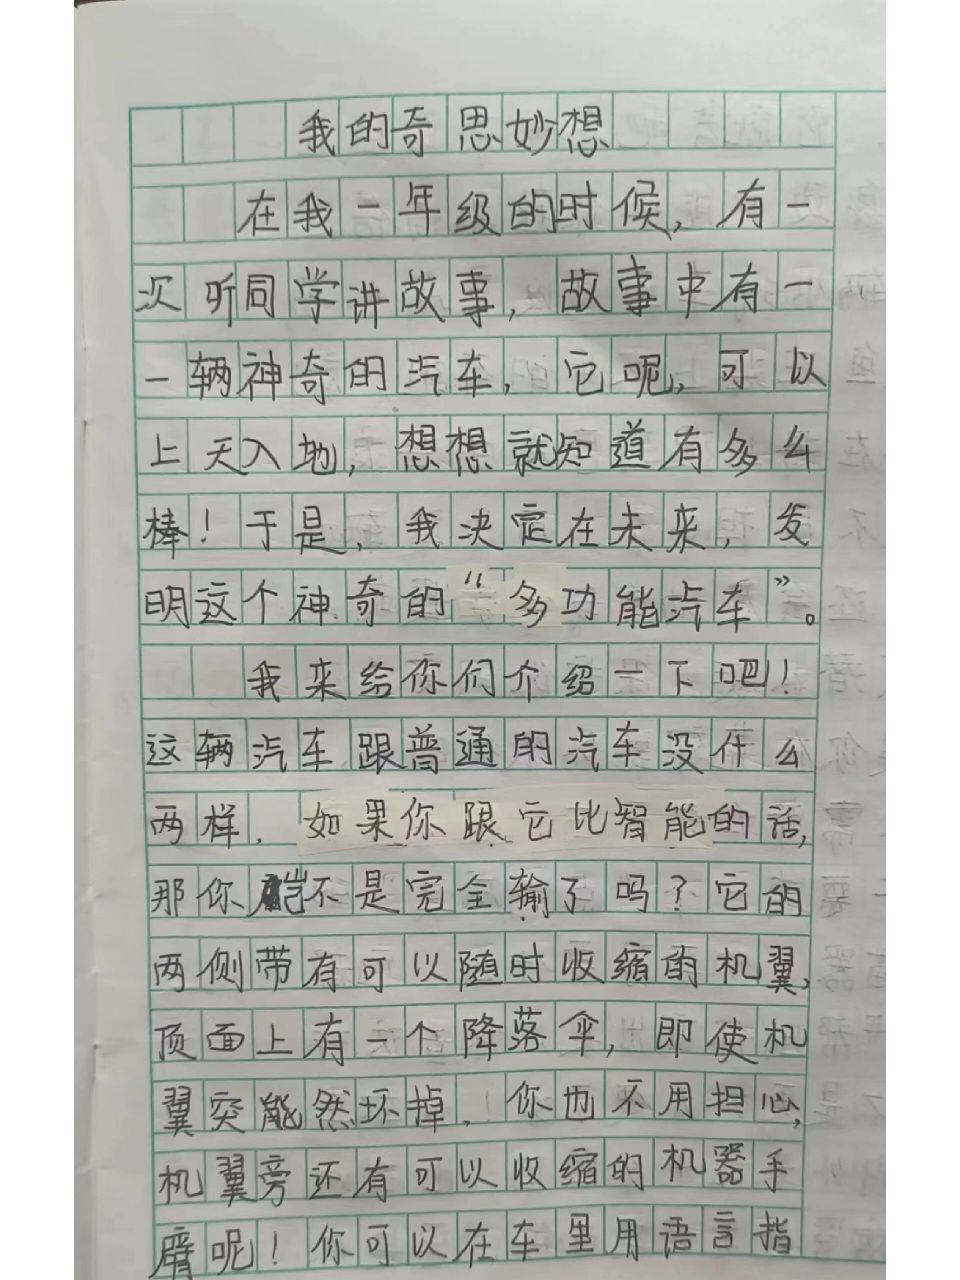 我的奇思妙想
在我一年级的时候，有一
次听同学讲故事，故事中有一
一辆神奇的汽车，它呢，可以
上天入地，想想就知道有多么
棒！于是，我决定在未来，发
明这个神奇的“多功能汽车”。
我来给你们介绍一下吧！
这辆汽车跟普通的汽车没什么
两样，如果你跟它比智能的话，
那你岂不是完全输了吗？它的
两侧带有可以随时收缩的机翼，
顶面上有一个降落伞，即使机
翼突能然坏掉，你也不用担心，
机翼旁还有可以收缩的机器手
臂呢！你可以在车里用语言指